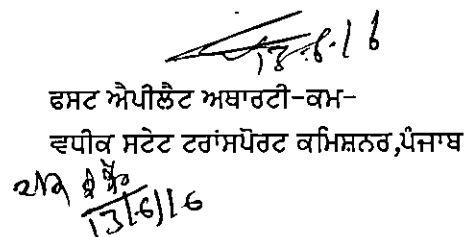 13.6.16
ਫਸਟ ਐਪੀਲੈਟ ਅਥਾਰਟੀ-ਕਮ-
ਵਧੀਕ ਸਟੇਟ ਟਰਾਂਸਪੋਰਟ ਕਮਿਸ਼ਨਰ,ਪੰਜਾਬ
13/6/16